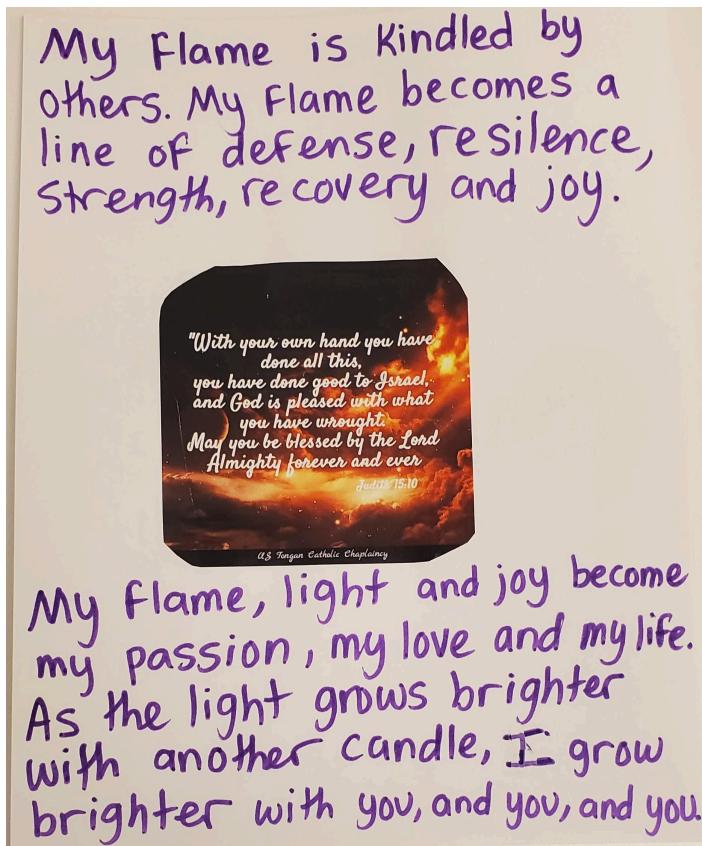 My Flame is Kindled by
others. My Flame becomes a
line of defense, resilence,
Strength, recovery and joy.
"With your own hand you have
done all this,
you have done good to Israel,
and God is pleased with what
you have wrought.
May you be blessed by the Lord
Almighty forever and ever
Judith 15:10
U.S Tongan Catholic Chaplaincy
My flame, light and joy become
my passion, my love and my life.
As the light grows brighter
with another candle, I grow
brighter with you, and you, and you.